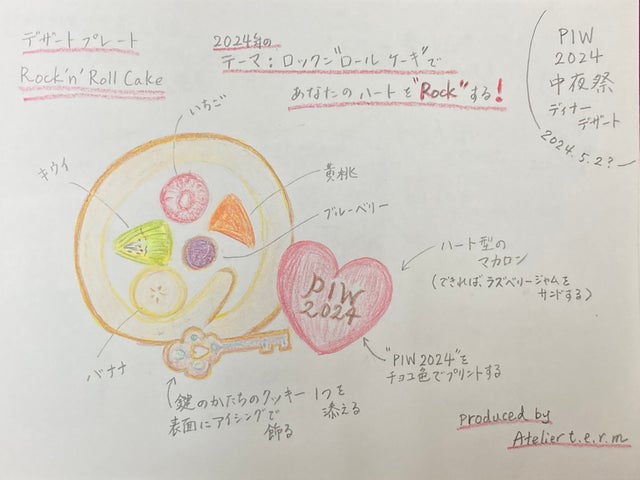 デザートプレート
Rock'n'Roll Cake
2024年の
テーマ：ロックン"ロールケーキ"で
あなたのハートを"Rock"する!
PIW
2024
中夜祭
ディナー
デザート
2024.5.2?
いちご
キウイ
黄桃
ブルーベリー
バナナ
PIW
2024
ハート型の
マカロン
(できればラズベリージャムを
サンドする)
"PIW 2024"を
チョコ色でプリントする
鍵のかたちのクッキー1つを
添える
表面にアイシングで
飾る
produced by
Atelier t.e.r.m